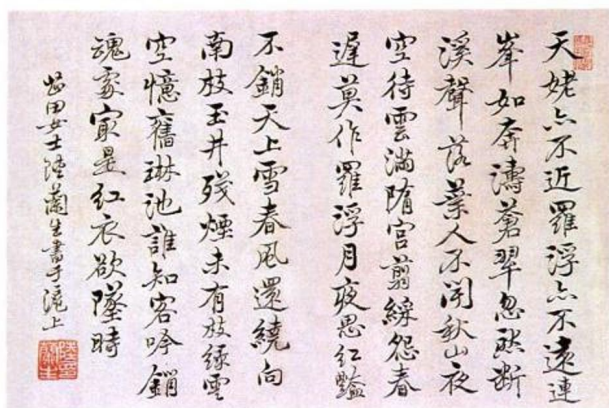 天姥亦不近羅浮亦不遠連
峯如奔濤蒼翠忽然斷
溪聲落葉人不聞秋山夜
空待雲滿隋宮翦綵怨春
遲莫作羅浮月夜思紅豔
不銷天上雪春風還繞向
南枝玉井殘煙未有枝綠雲
空憶舊琳池誰知客吟銷
魂處寂是紅衣欲墜時
女士陸蘭生書于滬上